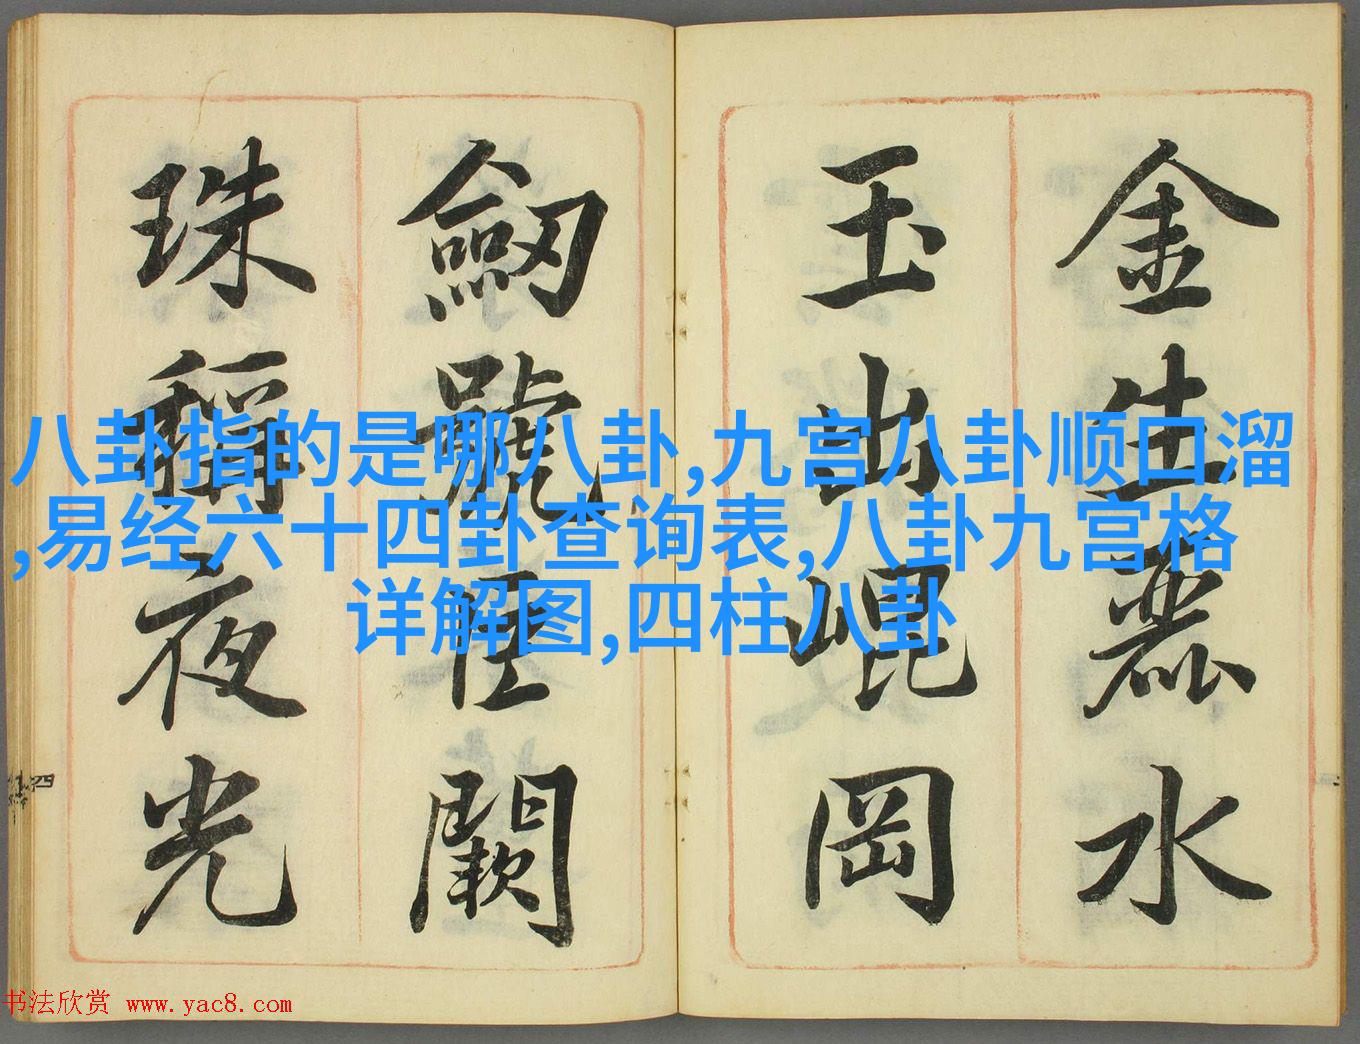 金生麗水
玉出崐岡
劒號巨闕
珠稱夜光
八卦指的是哪八卦,九宫八卦顺口溜
,易经六十四卦查询表,八卦九宫格
详解图,四柱八卦
书法欣赏 www.yac8.com